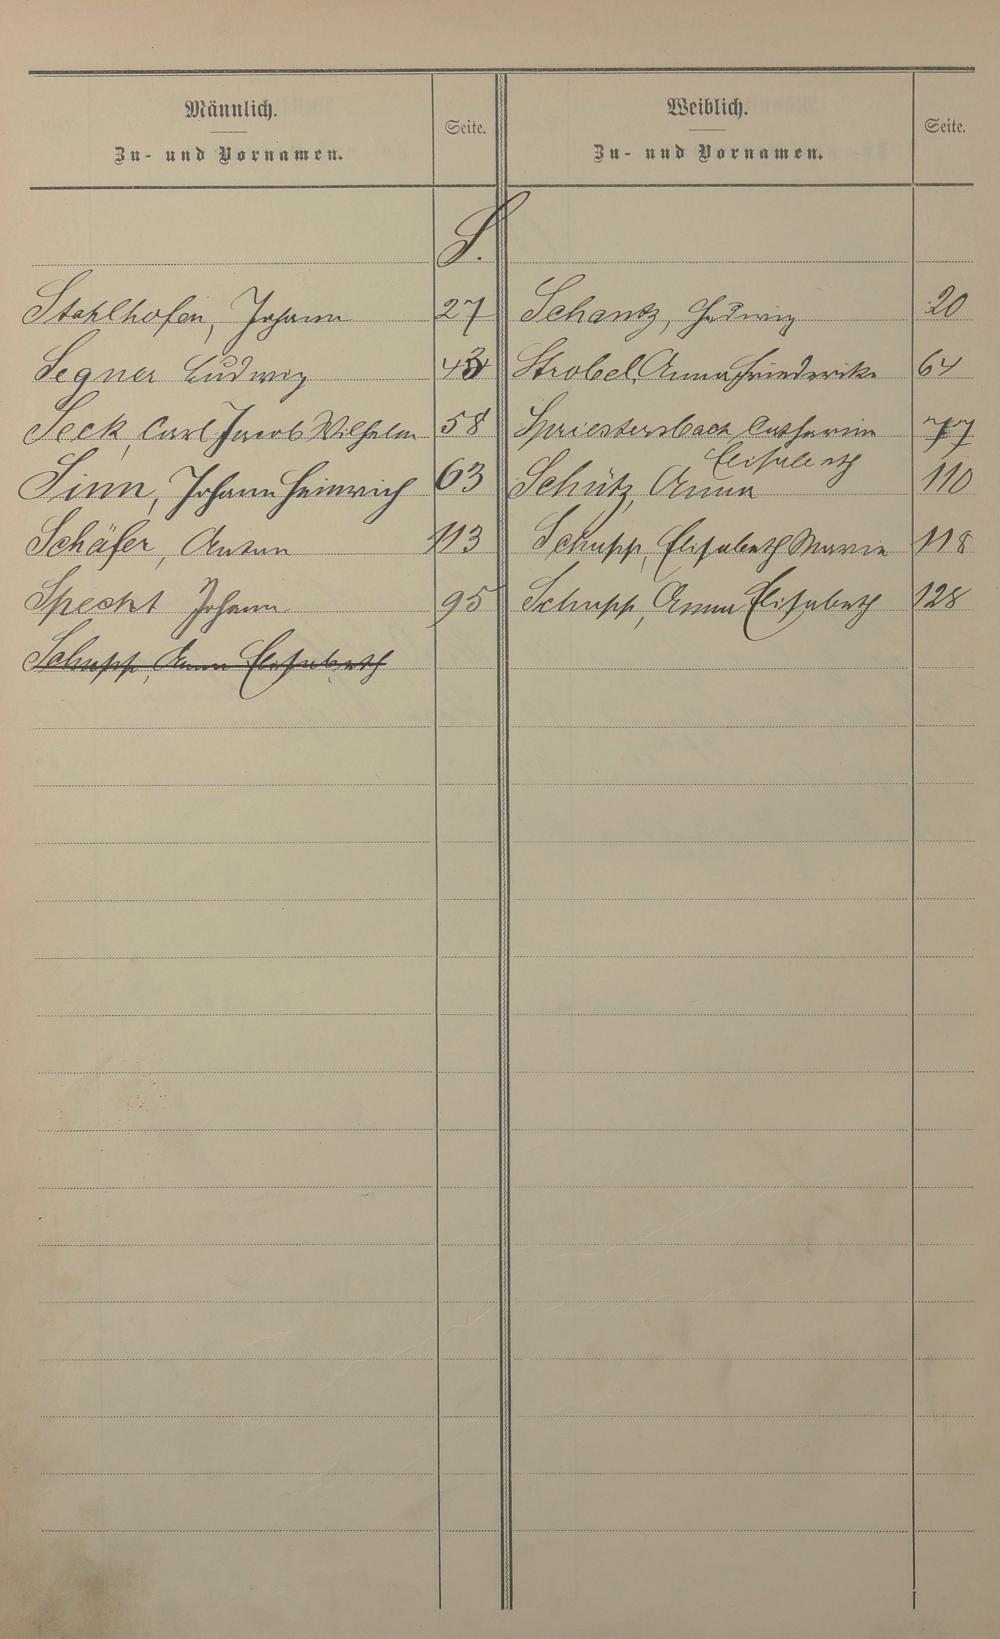 Männlich.
Zu- und Vornamen.
Seite.
Weiblich.
Zu- und Vornamen.
Seite.
S.
Stahlhofen, Johann 27
Segner Ludwig 43
Seck, Carl Jacob Wilhelm 58
Sinn, Johann Heinrich 63
Schäfer, Anton 113
Specht Johann 95
Schupp, Anna Elisabeth
Schantz, Hedwig 20
Strobel, Anna Friederike 64
Spriestersbach, Catharine 77
Elisabeth
Schütz, Anna 110
Schupp, Elisabeth Marie 118
Schupp, Anna Elisabeth 128